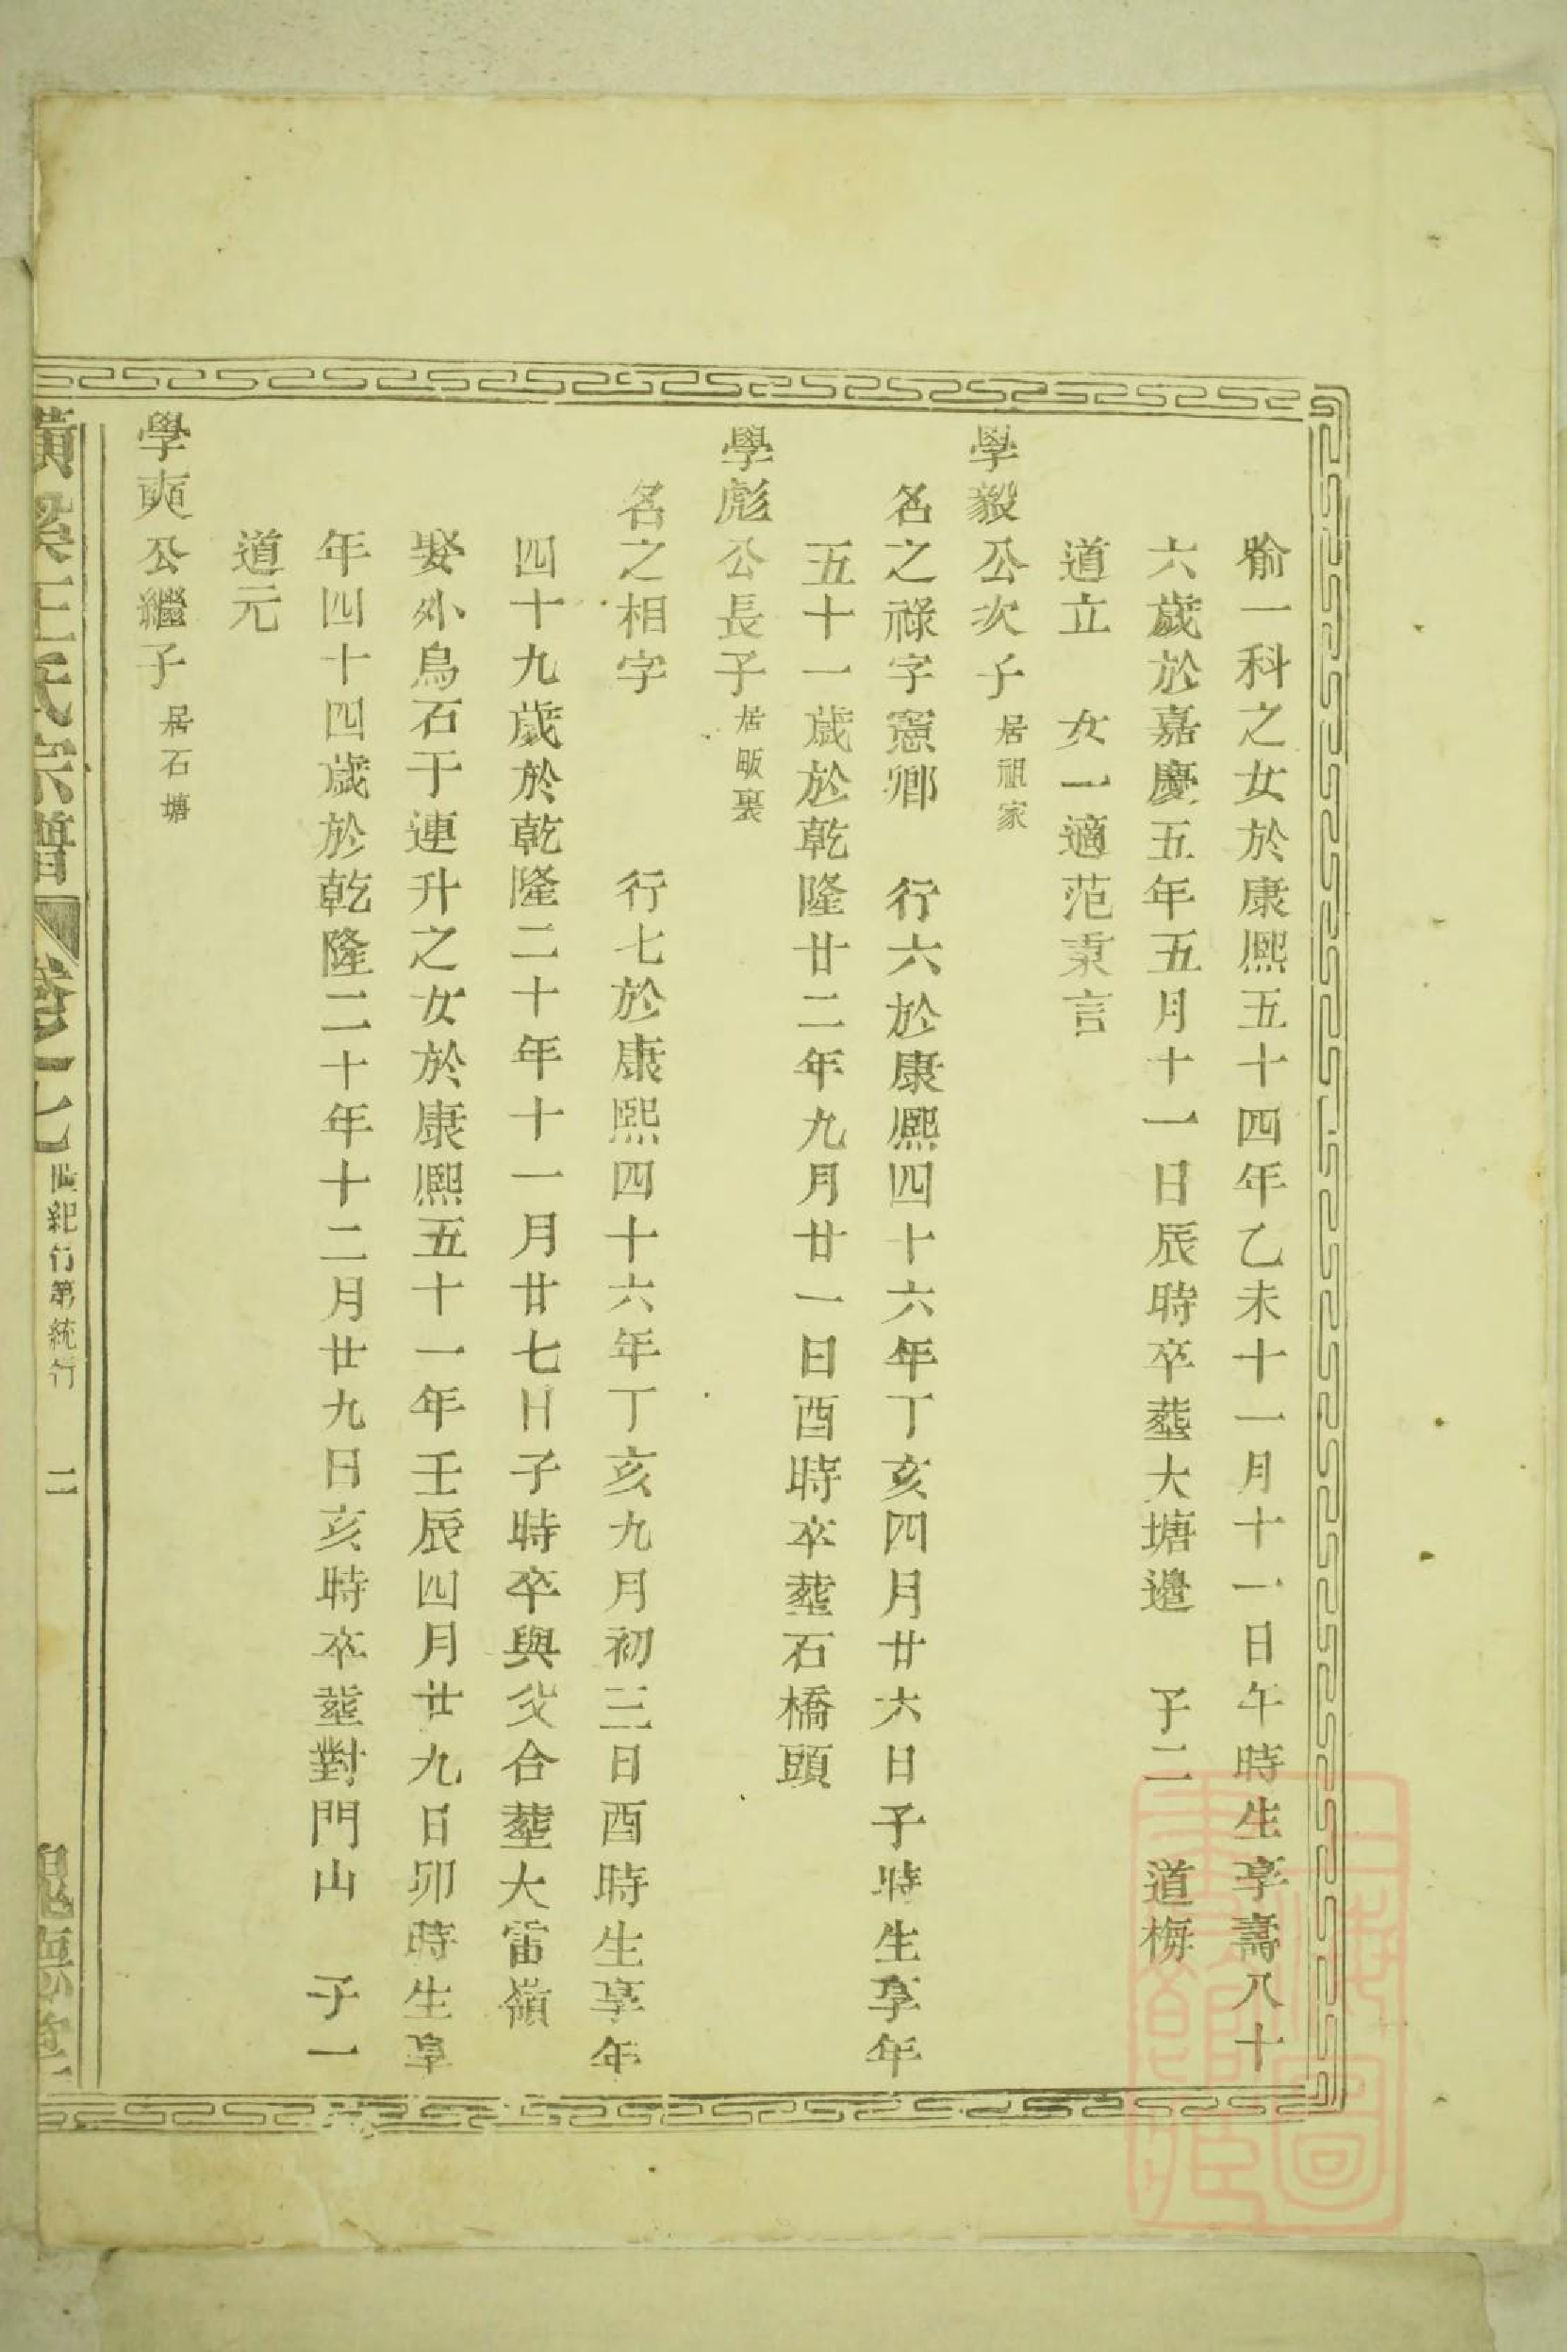 喻一科之女於康熙五十四年乙未十一月十一日午時生享壽八十
六歲於嘉慶五年五月十一日辰時卒塟大塘邉　子二　道梅
道立　女一適范秉言
學毅公次子居祖家
名之祿字憲卿　行六於康熙四十六年丁亥四月廿六日子時生享年
五十一歲於乾隆廿二年九月廿一日酉時卒塟石橋頭
學彪公長子居畈裏
名之相字　行七於康熙四十六年丁亥九月初三日酉時生享年
四十九歲於乾隆二十年十一月廿七日子時卒與父合塟大雷嶺
娶外鳥石干連升之女於康熙五十一年壬辰四月廿九日卯時生享
年四十四歲於乾隆二十年十二月廿九日亥時卒塟對門山　子一
道元
學奭公繼子居石塘
橫溪王氏宗譜　卷之七　世紀行第統行　二　槐德堂
上海圖書館藏